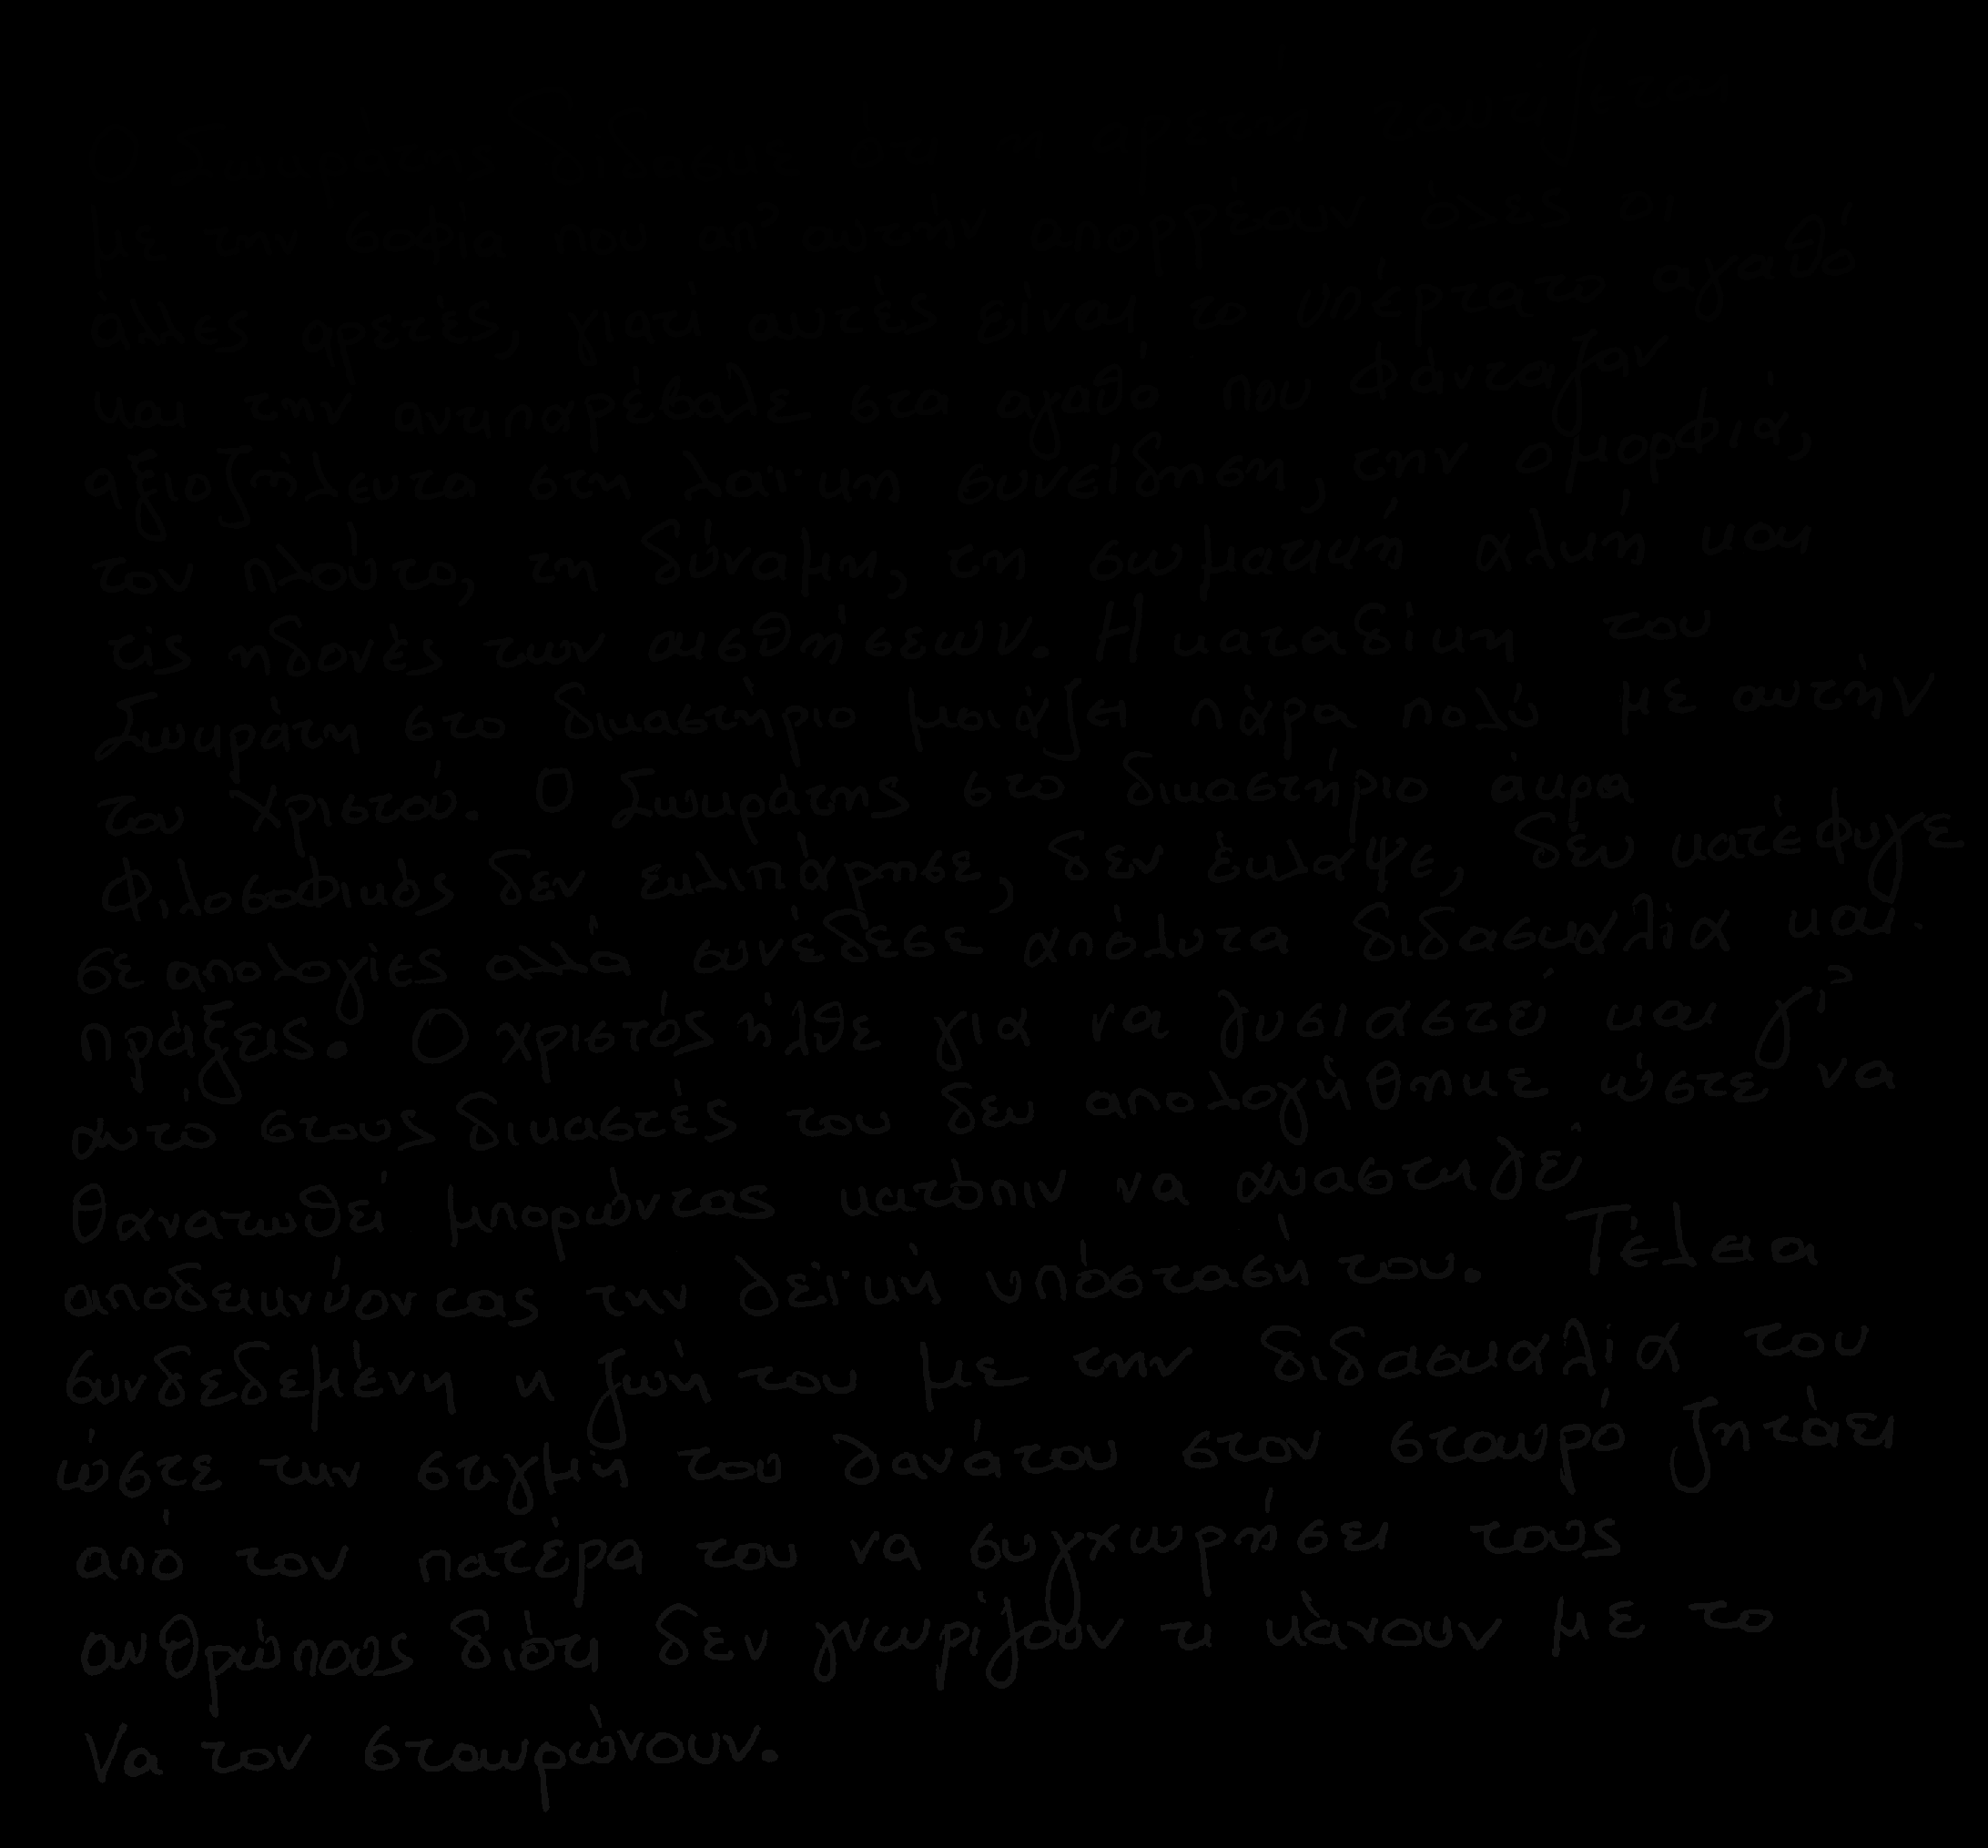 Ο Σωκράτης δίδασκε ότι η αρετή
με την σοφία που απ' αυτήν απορρέουν όλες οι
άλλες αρετές, γιατί αυτές είναι το υπέρτατο αγαθό
και την αντιπαρέβαλε στα αγαθό που φάνταζαν
αξιοζήλευτα στη λαϊκη συνείδηση, την ομορφιά,
τον πλούτο, τη δύναμη, τη σωματική αλκή και
τίς ηδονές των αισθήσεων. Η καταδίκη του
Σωκράτη στο δικαστήριο μοιάζει πάρα πολύ με αυτήν
του Χριστού. Ο Σωκράτης στο δικαστήριο άκρα
φιλοσοφικός δεν εκλιπάρησε, δεν έκλαψε, δεν κατέφυγε
σε απολογίες αλλά συνέδεσε απόλυτα διδασκαλία και.
πράξεις. Ο χριστός ήλθε για να θυσιαστεί και γι'
αυτό στους δικαστές του δεν απολογήθηκε ώστε να
θανατωθεί μπορώντας κατόπιν να αναστηθεί
αποδεικνύοντας την θεϊκή υπόστασή του. Τέλεια
συνδεδεμένη η ζωή του με την διδασκαλία του
ώστε την στιγμή του θανάτου στον σταυρό ζητάει
από τον πατέρα του να συγχωρήσει τους
ανθρώπους διότι δεν γνωρίζουν τι κάνουν με το
να τον σταυρώνουν.